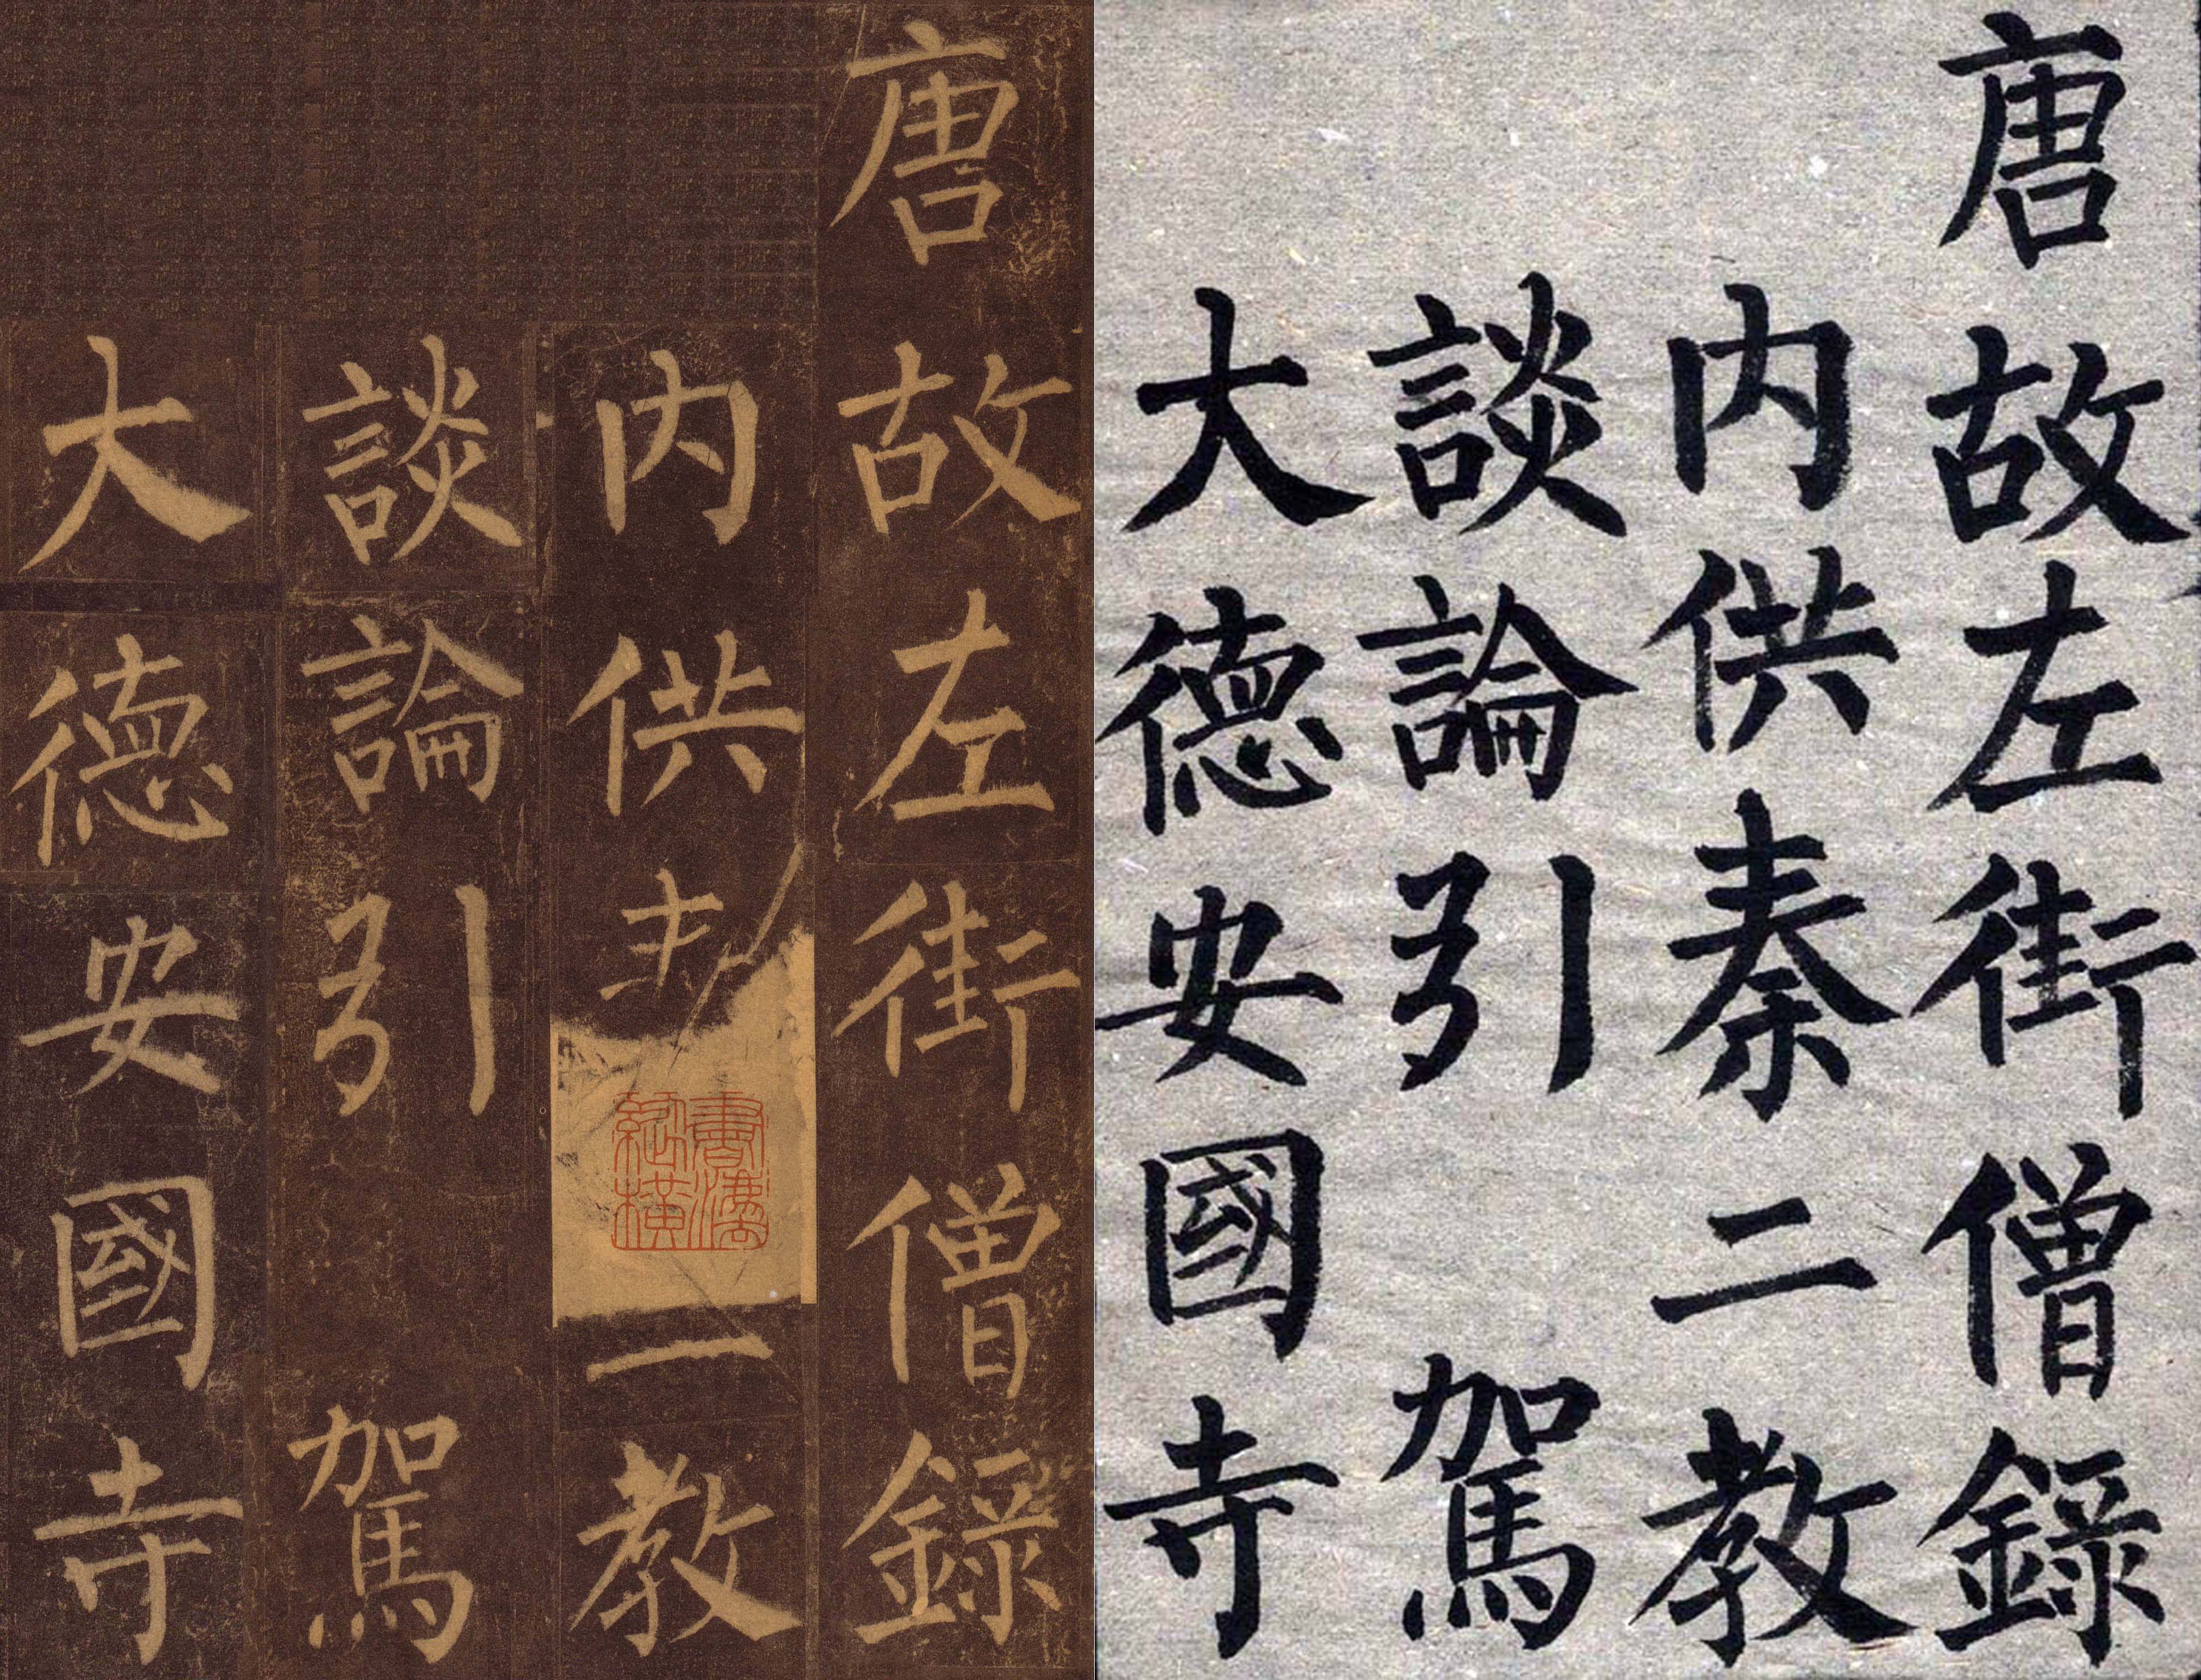 唐故左街僧錄
内供一教
談論引駕
大德安國寺
唐故左街僧錄
内供秦二教
談論引駕
大德安國寺